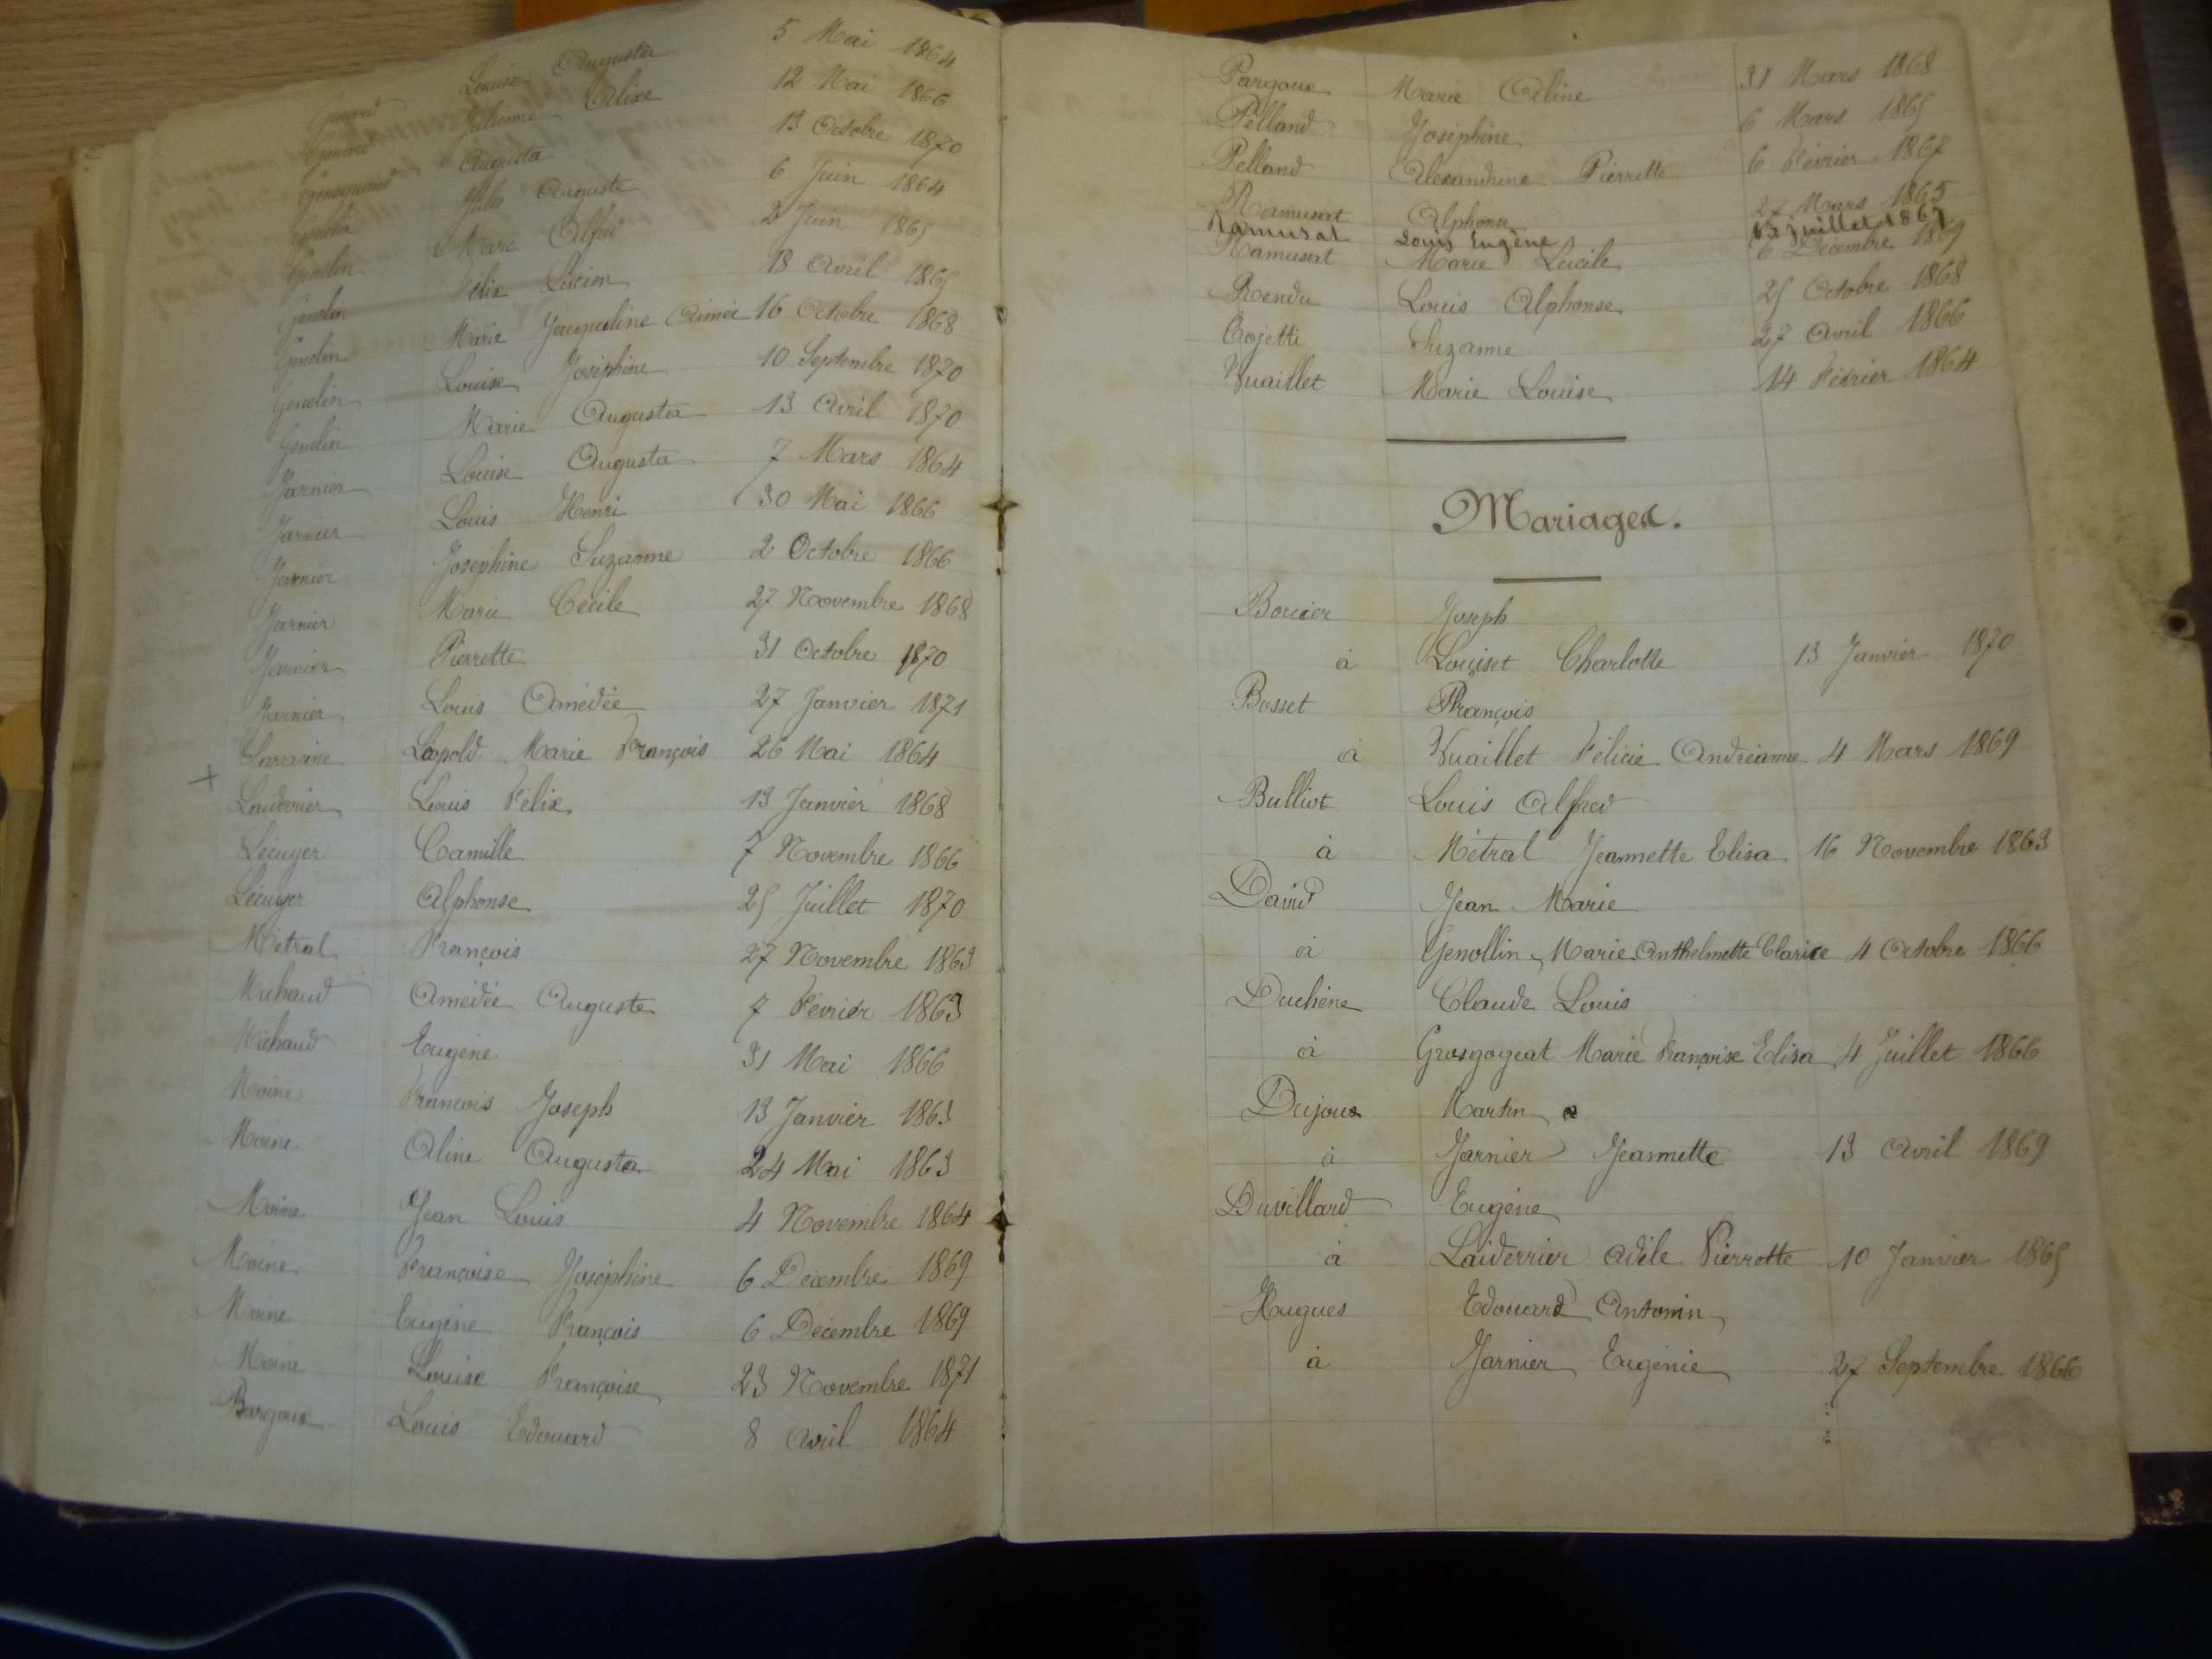 Louise Augusta 5 Mai 1864
Julienne Alix 12 Mai 1866
Augusta 13 Octobre 1870
Jules Auguste 6 Juin 1864
Gendin Marc Alfred 2 Juin 1865
Gendin Félix Lucien 18 Avril 1865
Gendin Marie Jacqueline Aimée 16 Octobre 1868
Gendin Louise Joséphine 10 Septembre 1870
Gendin Marie Augusta 13 Avril 1870
Jarnier Louise Augusta 7 Mars 1864
Jarnier Louis Henri 30 Mai 1866
Jarnier Joséphine Suzanne 2 Octobre 1866
Jarnier Marie Cécile 27 Novembre 1868
Jarnier Pierrette 31 Octobre 1870
Jarnier Louis Amédée 27 Janvier 1871
Léopold Marie François 26 Mai 1864
+ Laiderrier Louis Félix 13 Janvier 1868
Lécuyer Camille 7 Novembre 1866
Lécuyer Alphonse 25 Juillet 1870
Métral François 27 Novembre 1863
Michaud Amédée Auguste 7 Février 1863
Michaud Eugène 31 Mai 1866
Moine François Joseph 13 Janvier 1863
Moine Aline Augusta 24 Mai 1863
Moine Jean Louis 4 Novembre 1864
Moine Françoise Joséphine 6 Décembre 1869
Moine Eugène François 6 Décembre 1869
Moine Louise Françoise 23 Novembre 1871
Pargoux Louis Edouard 8 Avril 1864
Pargoux Marie Aline 31 Mars 1868
Pelland Joséphine 6 Mars 1865
Pelland Alexandrine Pierrette 6 Février 1867
Ramusat Alphonse 27 Mars 1865
Ramusat Louis Eugène 13 juillet 1867
Ramusat Marie Lucile 6 Décembre 1869
Rendu Louis Alphonse 25 Octobre 1868
Cojetti Suzanne 27 Avril 1866
Vuaillet Marie Louise 14 Février 1864
Mariages.
Bouvier Joseph
à Louiset Charlotte 13 Janvier 1870
Bosset François
à Vuaillet Félicie Andréanne 4 Mars 1869
Bulliot Louis Alfred
à Métral Jeannette Elisa 16 Novembre 1863
David Jean Marie
à Genollin Marie Anthelmette Clarice 4 Octobre 1866
Duchêne Claude Louis
à Grosgogeat Marie Françoise Elisa 4 Juillet 1866
Dujoux Martin
à Jarnier Jeannette 13 Avril 1869
Duvillard Eugène
à Laiderrier Adèle Pierrette 10 Janvier 1865
Hugues Edouard Antonin
à Jarnier Eugénie 27 Septembre 1866